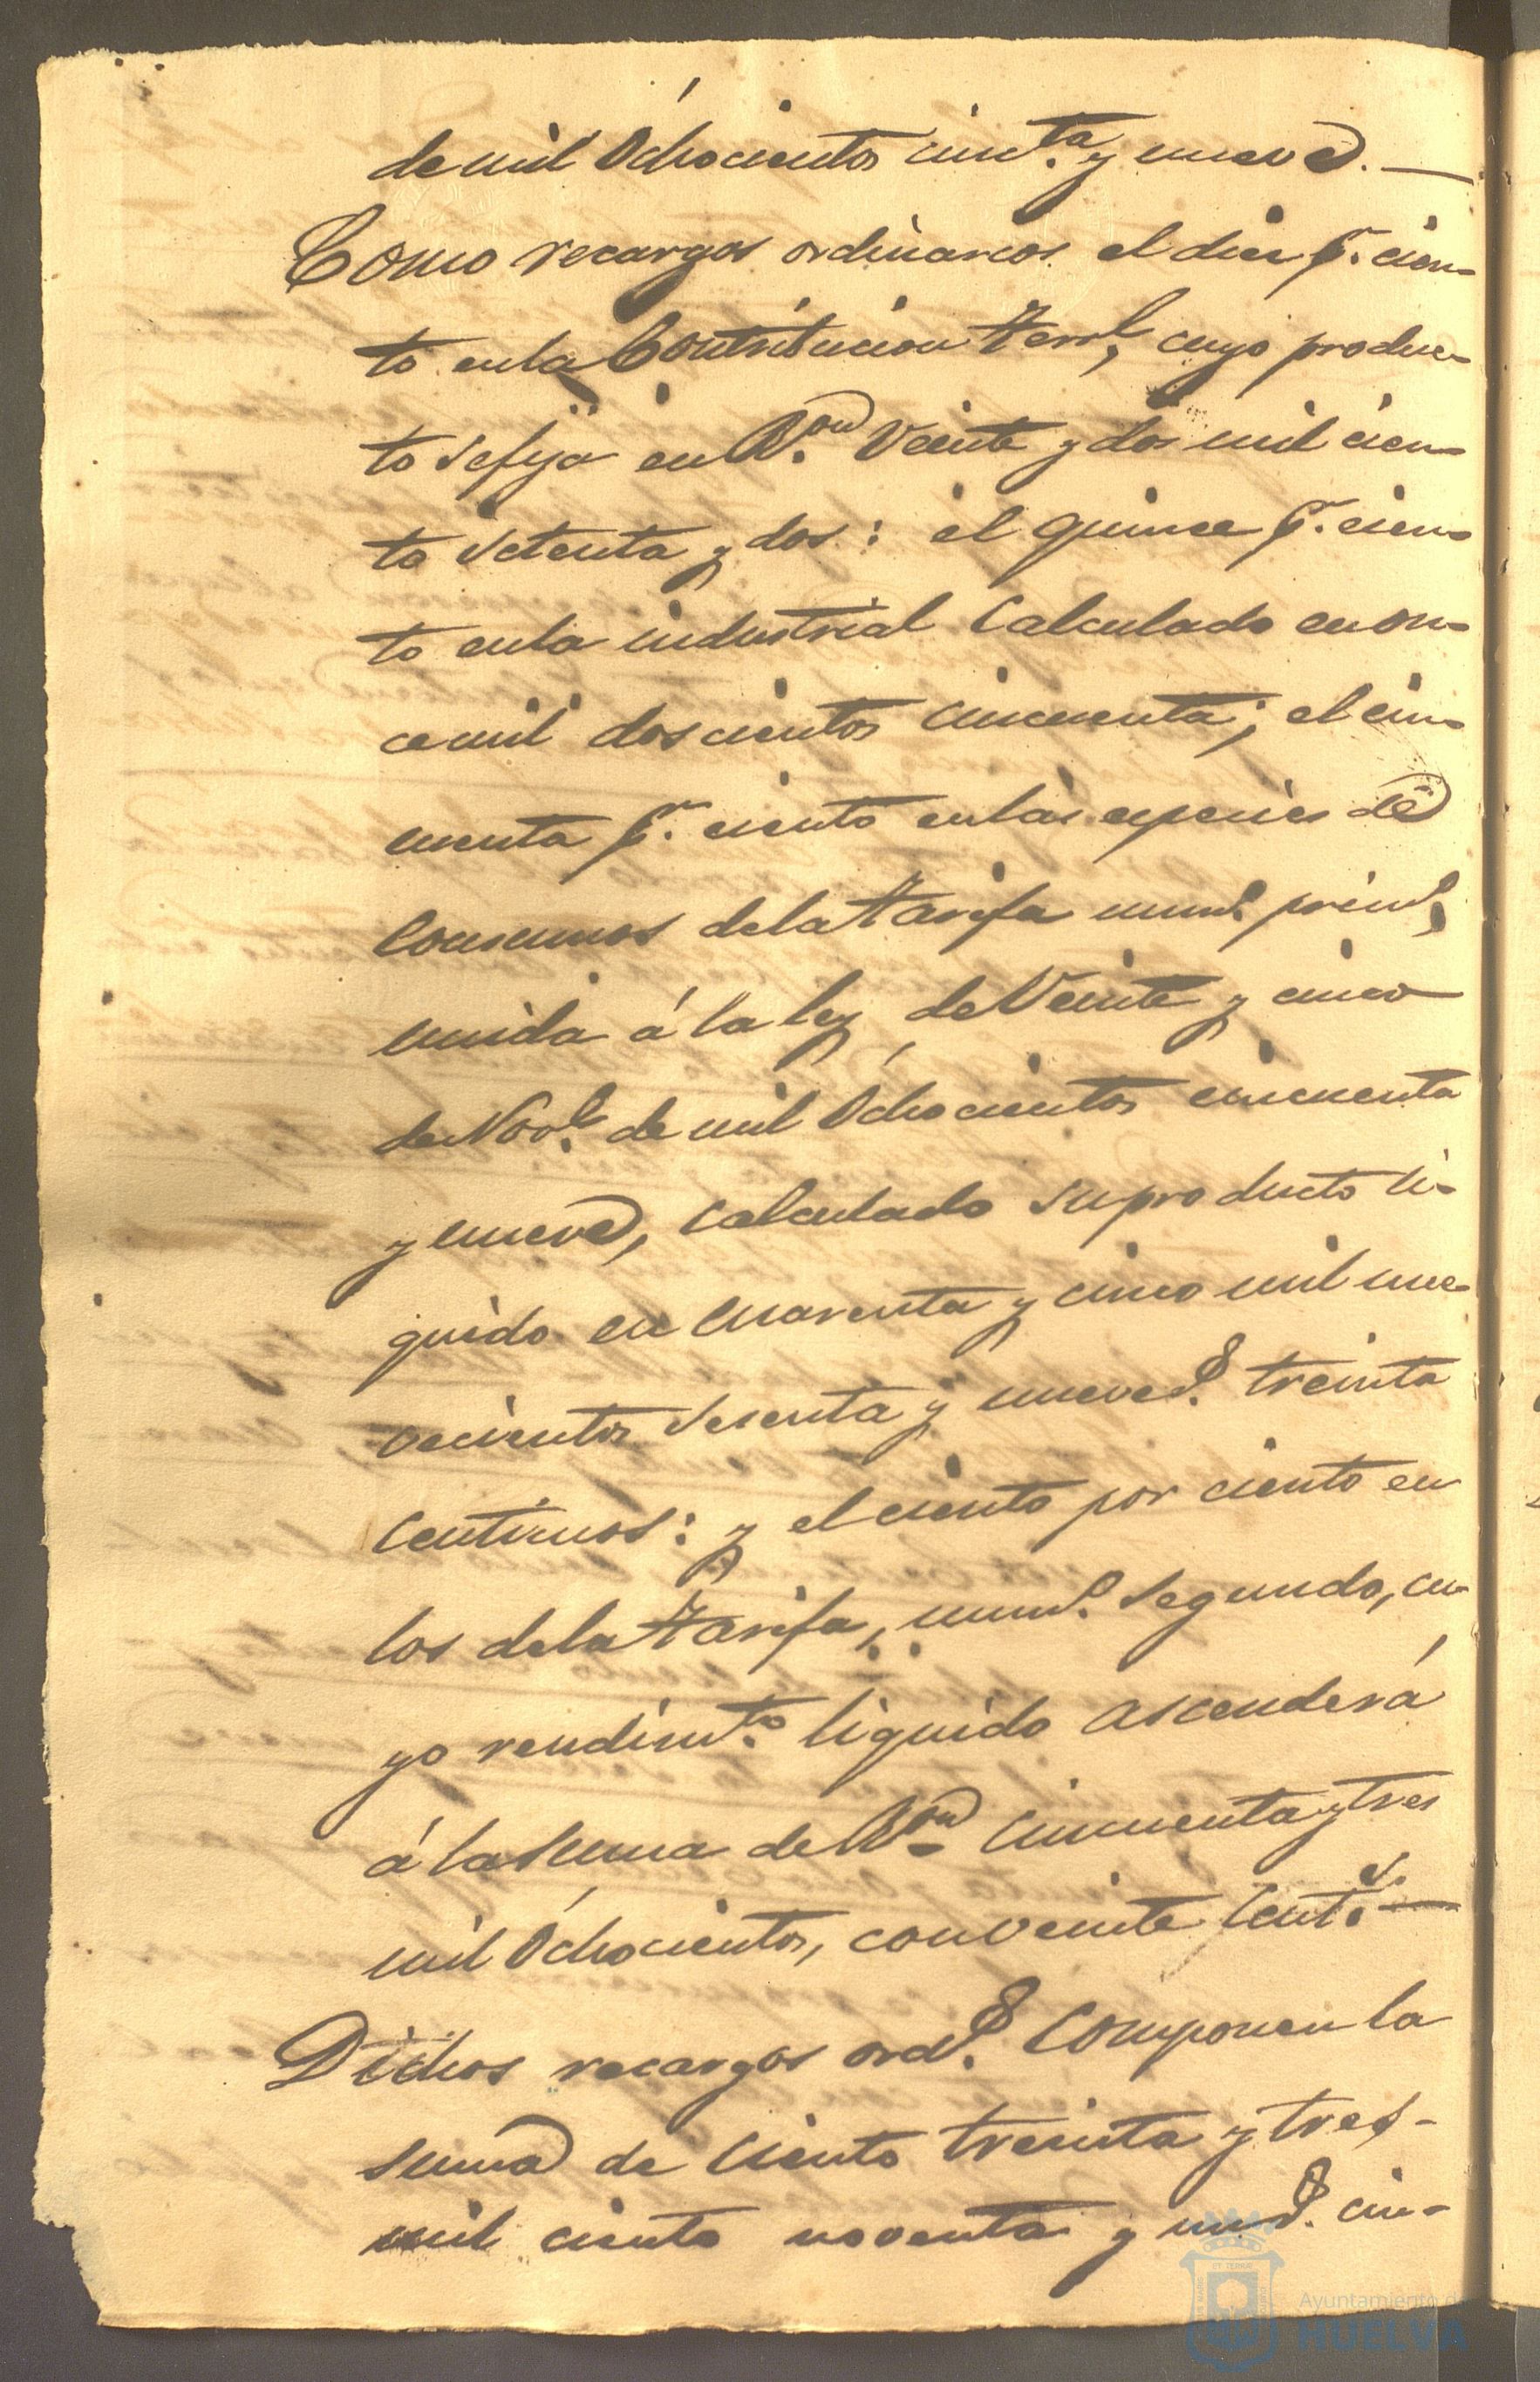 de mil Ochocientos cinc.ta y nueve.—
Como recargos ordinarios el diez p.r cien-
to en la Contribucion terr.l, cuyo produc-
to se fija en R.on Veinte y dos mil cien-
to setenta y dos: el quince p.r cien-
to en la industrial calculado en on-
ce mil doscientos cincuenta; el cin-
cuenta p.r ciento en las especies de
consumos de la tarifa num.o prim.o,
unida á la ley de Veinte y cinco
de Nov.e de mil Ochocientos cincuenta
y nueve, calculado su producto lí-
quido en cuarenta y cinco mil nue-
vecientos sesenta y nueve r.s treinta
centimos: y el ciento por ciento en
los de la tarifa, num.o segundo, cu-
yo rendim.to liquido ascenderá
á la suma de R.on cincuenta y tres
mil Ochocientos, con veinte cent.s—
Dichos recargos ord.s componen la
suma de ciento treinta y tres-
mil ciento noventa y un r.s cin-
Ayuntamiento de
HUELVA